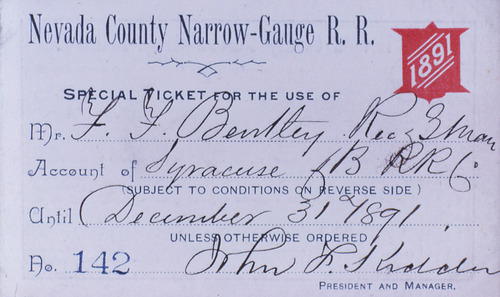 Nevada County Narrow-Gauge R. R.
1891
SPECIAL TICKET FOR THE USE OF
Mr. F. F. Bentley
Account of Syracuse B RR Co
(SUBJECT TO CONDITIONS ON REVERSE SIDE)
Until December 31 1891
UNLESS OTHERWISE ORDERED
No. 142 John F. Kidder
PRESIDENT AND MANAGER.